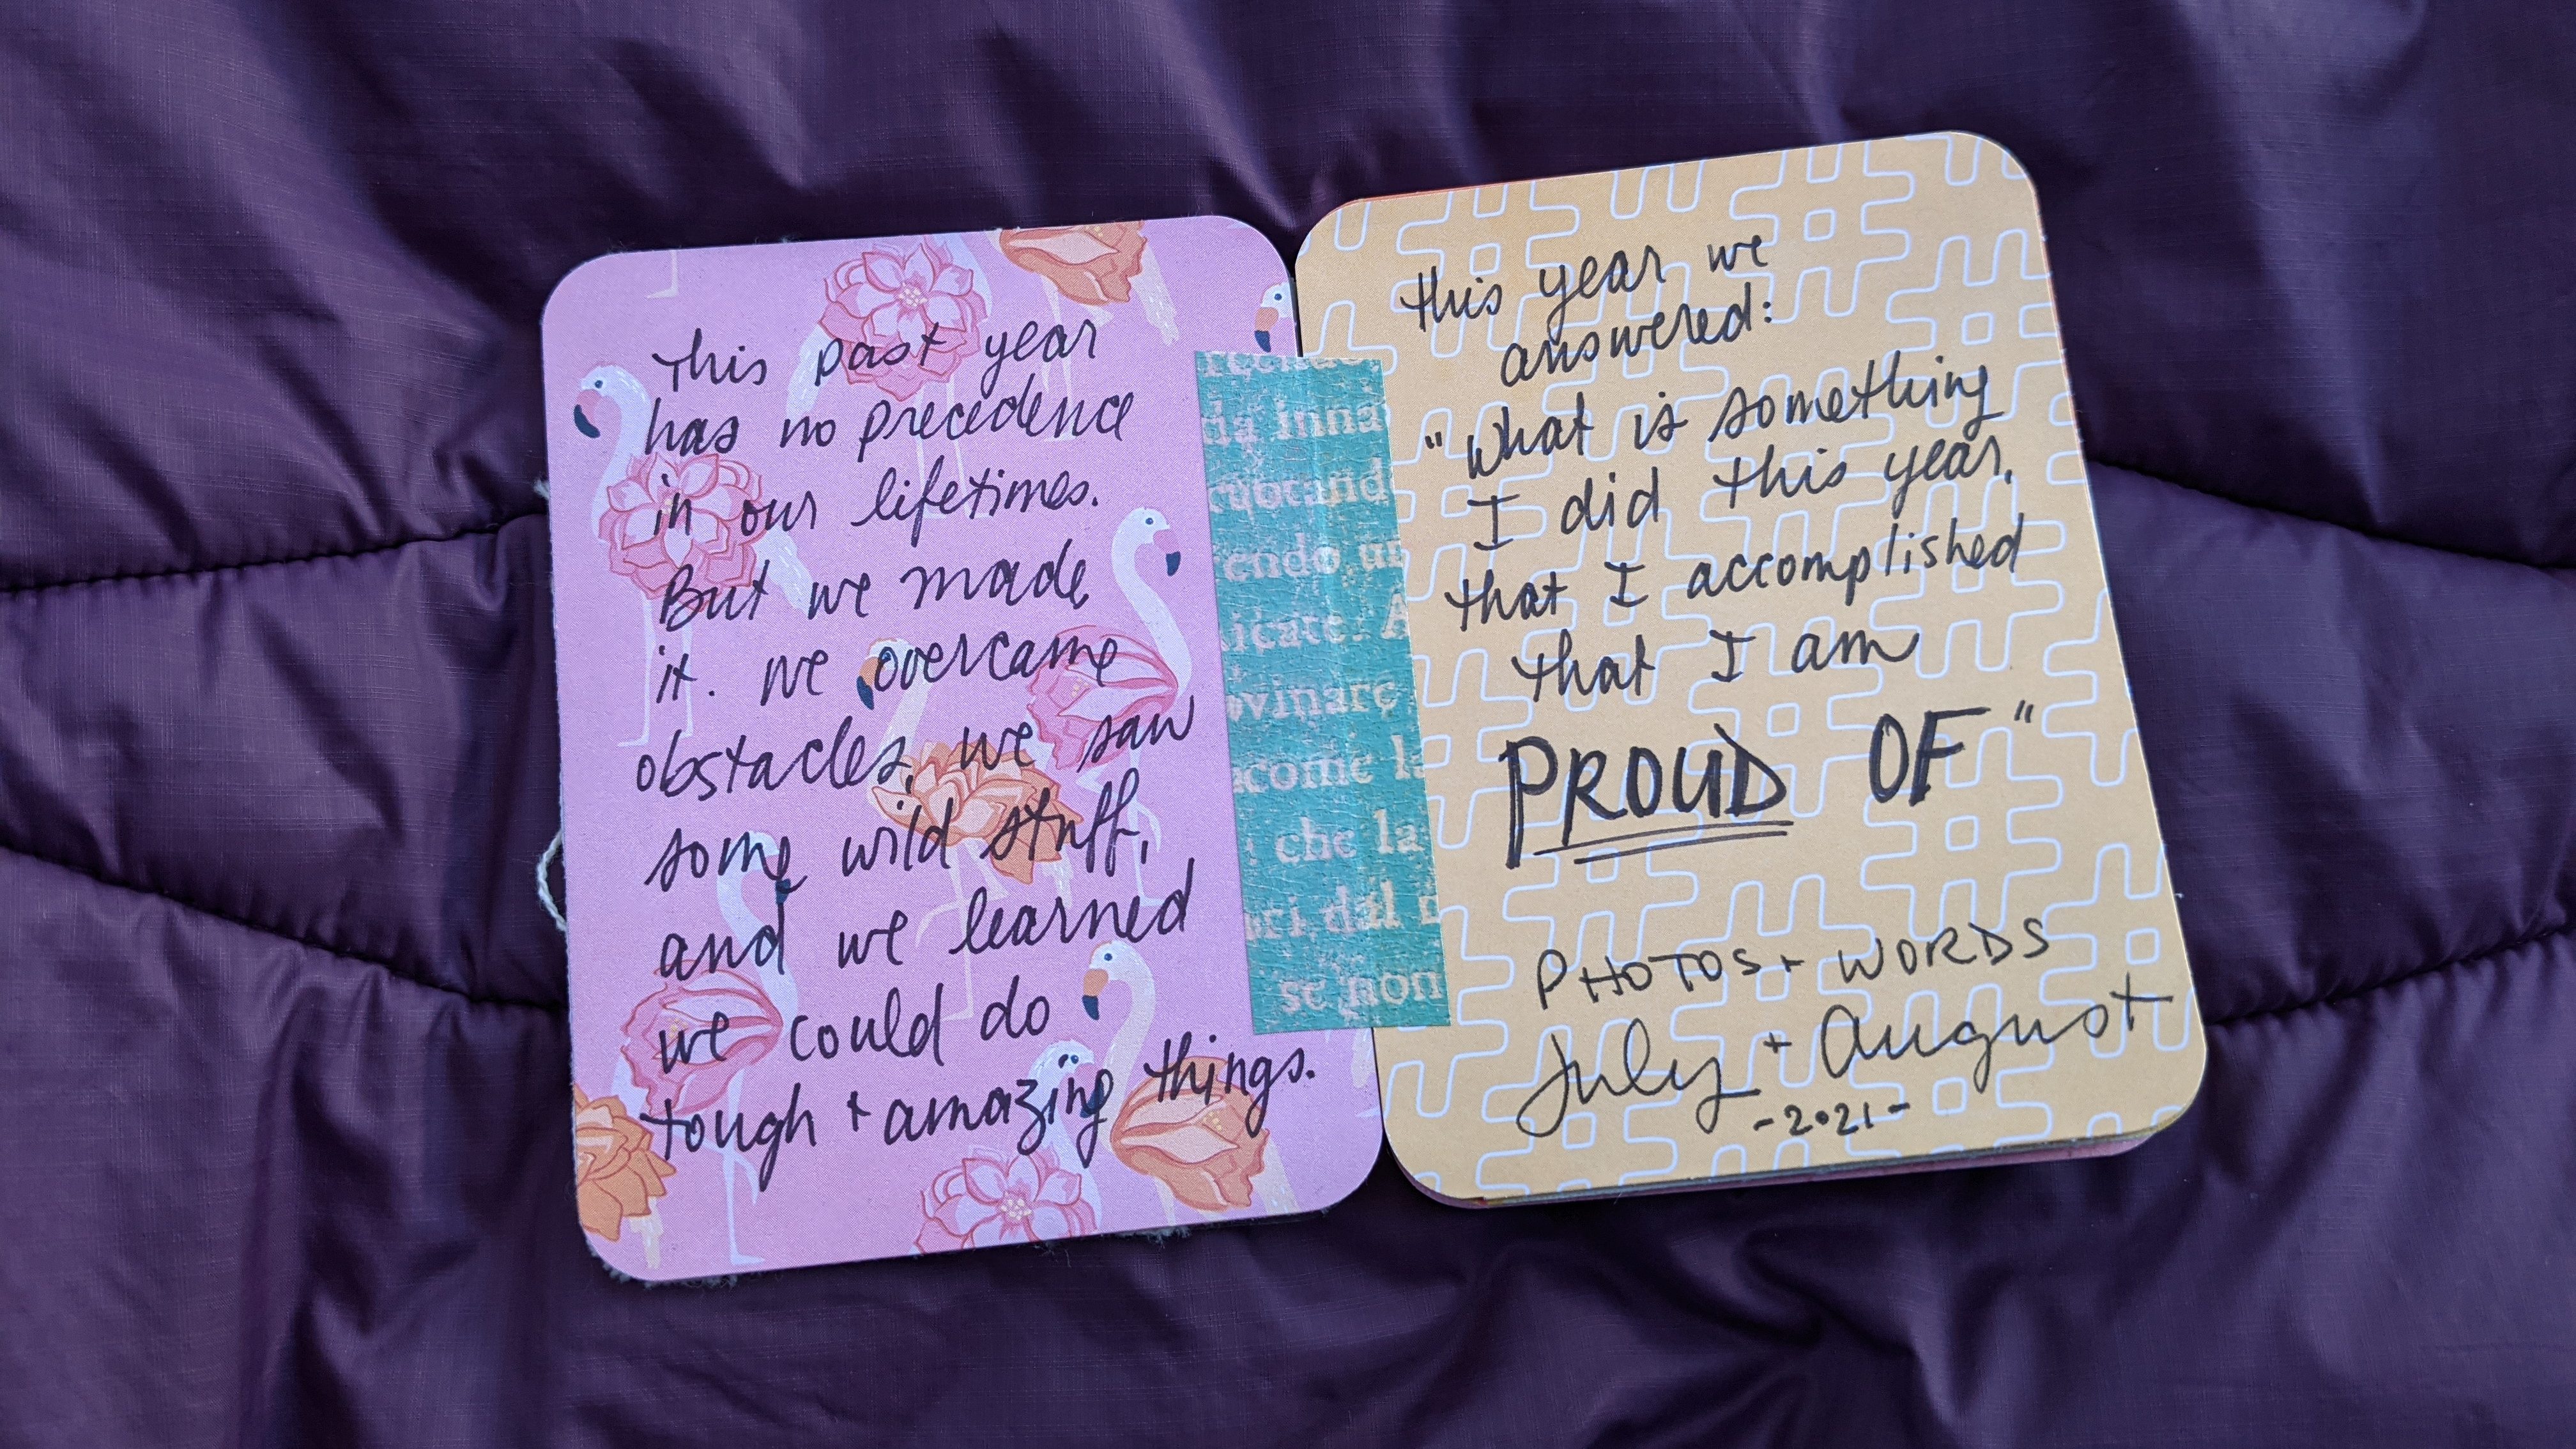 this past year
has no precedence
in our lifetimes.
But we made
it. we overcame
obstacles, we saw
some wild stuff,
and we learned
we could do
tough + amazing things.
da inna
endo un
icate. A
vinare
come la
che la
ri, dal
se non
this year we
answered:
"What is something
I did this year,
that I accomplished
that I am
PROUD OF"
PHOTOS + WORDS
July + August
-2021-